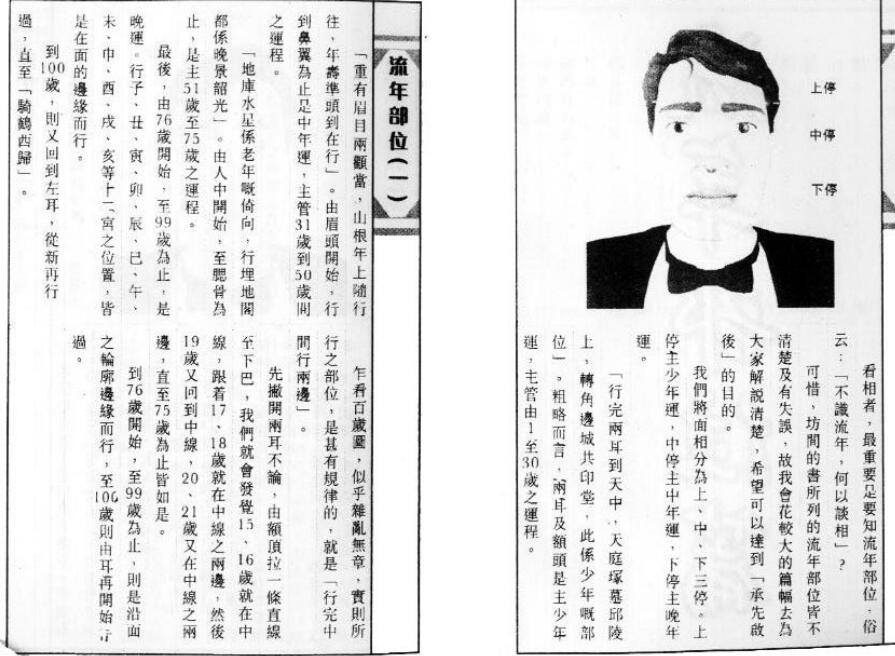 上停
中停
下停
看相者，最重要是要知流年部位，俗
云：「不識流年，何以談相」？
可惜，坊間的書所列的流年部位皆不
清楚及有失誤，故我會花較大的篇幅去為
大家解說清楚，希望可以達到「承先啟
後」的目的。
我們將面相分為上、中、下三停。上
停主少年運，中停主中年運，下停主晚年
運。
「行完兩耳到天中，天庭塚墓邱陵
上，轉角邊城共印堂，此係少年嘅部
位」。粗略而言，兩耳及額頭是主少年
運，主管由1至30歲之運程。
流年部位(一)
「重有眉目兩顴當，山根年上隨行
往，年壽準頭到在行」。由眉頭開始，行
到鼻翼為止是中年運，主管31歲到50歲間
之運程。
「地庫水星係老年嘅倚向，行埋地閣
都係晚景韶光」。由人中開始，至腮骨為
止，是主51歲至75歲之運程。
最後，由76歲開始，至99歲為止，是
晚運。行子、丑、寅、卯、辰、巳、午、
未、申、酉、戌、亥等十二宮之位置，皆
是在面的邊緣而行。
到100歲，則又回到左耳，從新再行
過，直至「騎鶴西歸」。
乍看百歲圖，似乎雜亂無章，實則所
行之部位，是甚有規律的，就是「行完中
間行兩邊」。
先撇開兩耳不論，由額頂拉一條直線
至下巴，我們就會發覺15、16歲就在中
線，跟着17、18歲就在中線之兩邊，然後
19歲又回到中線，20、21歲又在中線之兩
邊，直至75歲為止皆如是。
到76歲開始，至99歲為止，則是沿面
之輪廓邊緣而行，至100歲則由耳再開始行
過。